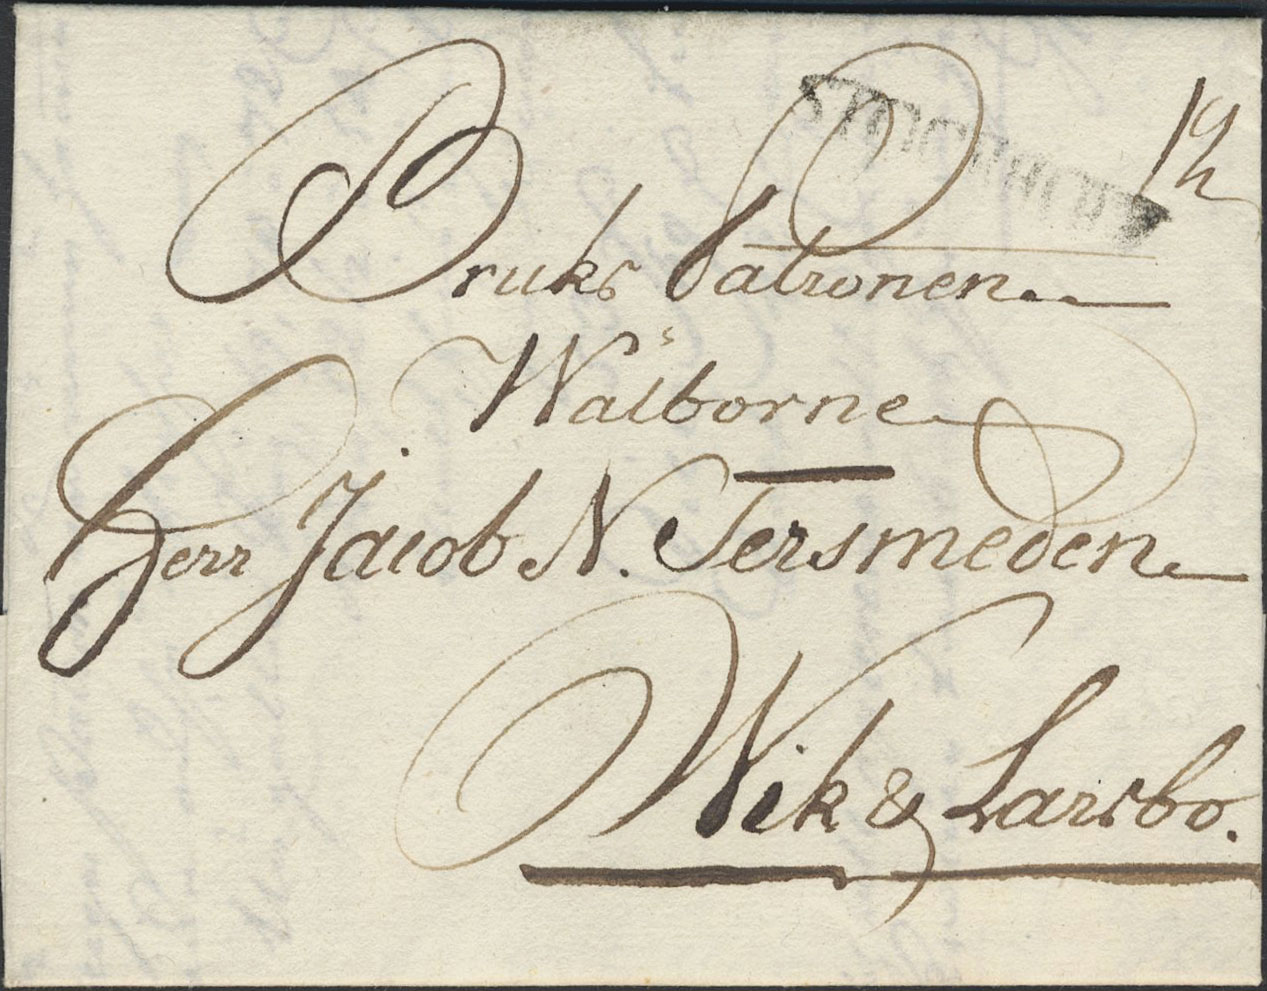 STOCKHOLM
Bruks Patronen
Walborne
Herr Jacob N. Tersmeden
Wik & Larsbo.